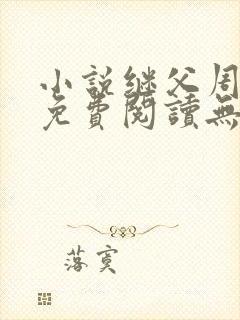 小說继父周
免費閱讀無
落寞